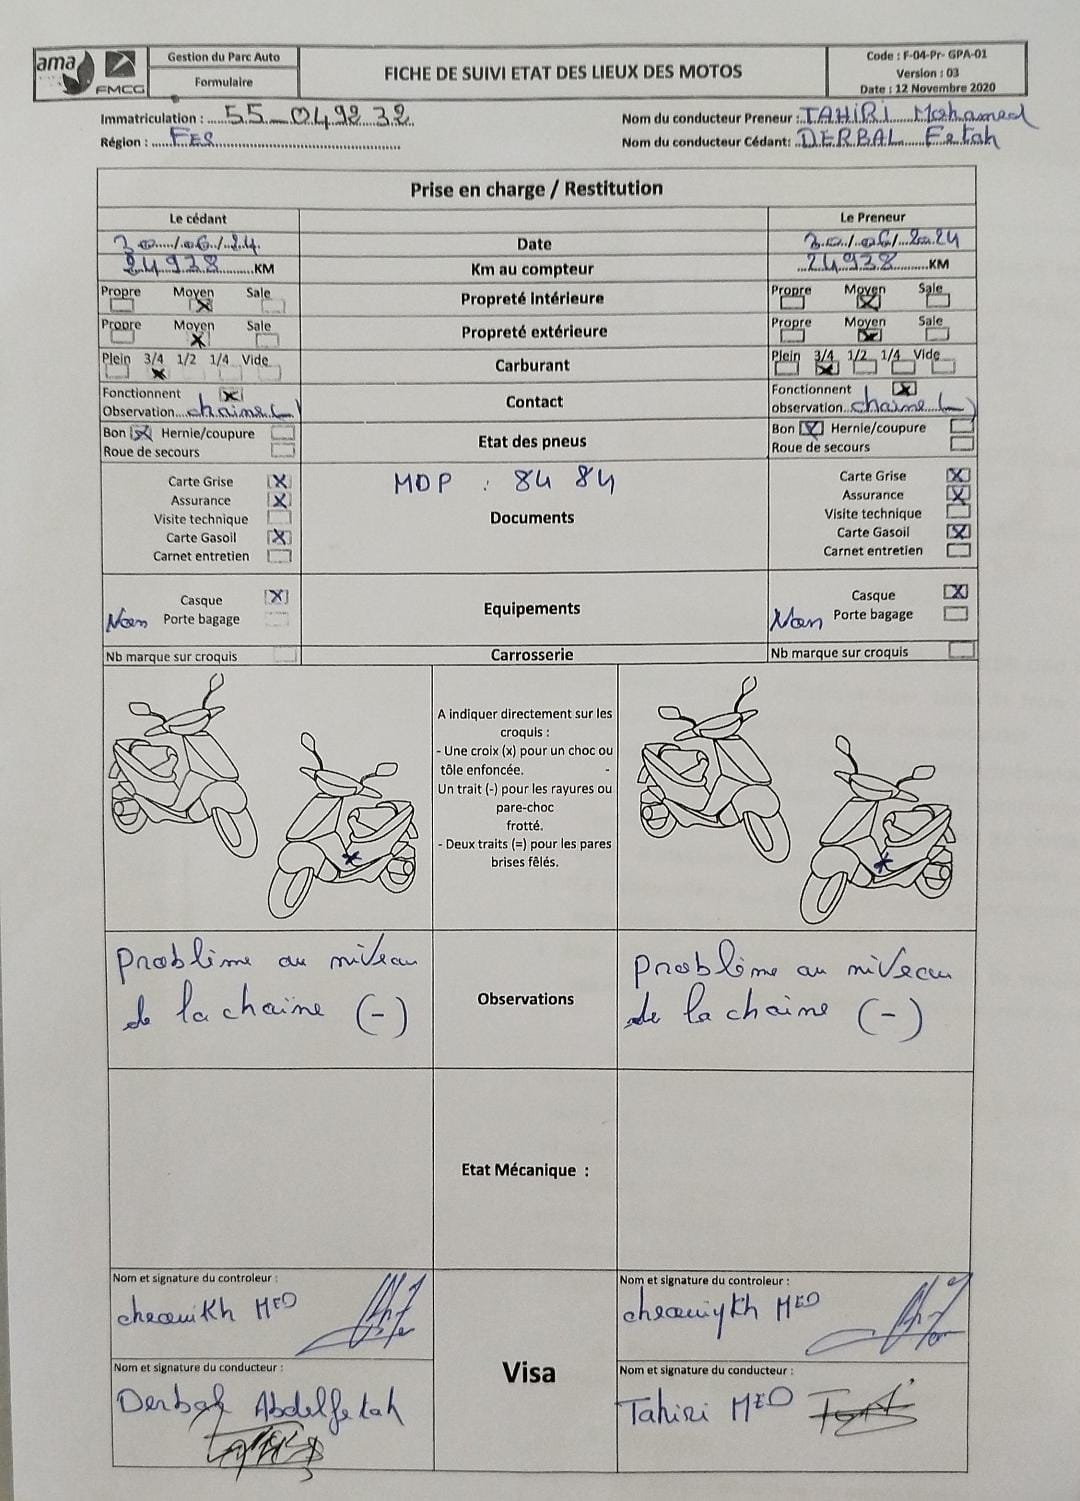 ama FMCG
Gestion du Parc Auto
Formulaire
FICHE DE SUIVI ETAT DES LIEUX DES MOTOS
Code : F-04-Pr- GPA-01
Version : 03
Date : 12 Novembre 2020
Immatriculation : 55_0492 32
Nom du conducteur Preneur : TAHIRI Mohamed
Région : FES
Nom du conducteur Cédant: DERBAL Fetah
Prise en charge / Restitution
Le cédant
Le Preneur
30/06/24. Date 30/06/2024
24938 KM Km au compteur 24938 KM
Propre Moyen Sale Propreté intérieure Propre Moyen Sale
Propre Moyen Sale Propreté extérieure Propre Moyen Sale
Plein 3/4 1/2 1/4 Vide Carburant Plein 3/4 1/2 1/4 Vide
Fonctionnent Contact Fonctionnent
Observation chaine (-) observation chaine (-)
Bon Hernie/coupure Etat des pneus Bon Hernie/coupure
Roue de secours Roue de secours
MDP : 84 84
Documents
Carte Grise Carte Grise
Assurance Assurance
Visite technique Visite technique
Carte Gasoil Carte Gasoil
Carnet entretien Carnet entretien
Casque Equipements Casque
Non Porte bagage Non Porte bagage
Nb marque sur croquis Carrosserie Nb marque sur croquis
A indiquer directement sur les
croquis :
- Une croix (x) pour un choc ou
tôle enfoncée. -
Un trait (-) pour les rayures ou
pare-choc
frotté.
- Deux traits (=) pour les pares
brises fêlés.
Problème au niveau
de la chaine (-)
Observations
Problème au niveau
de la chaine (-)
Etat Mécanique :
Nom et signature du controleur :
Nom et signature du controleur :
cheouikh MED
cheouiykh MED
Visa
Nom et signature du conducteur :
Nom et signature du conducteur :
Derbal Abdelfetah
Tahiri MED